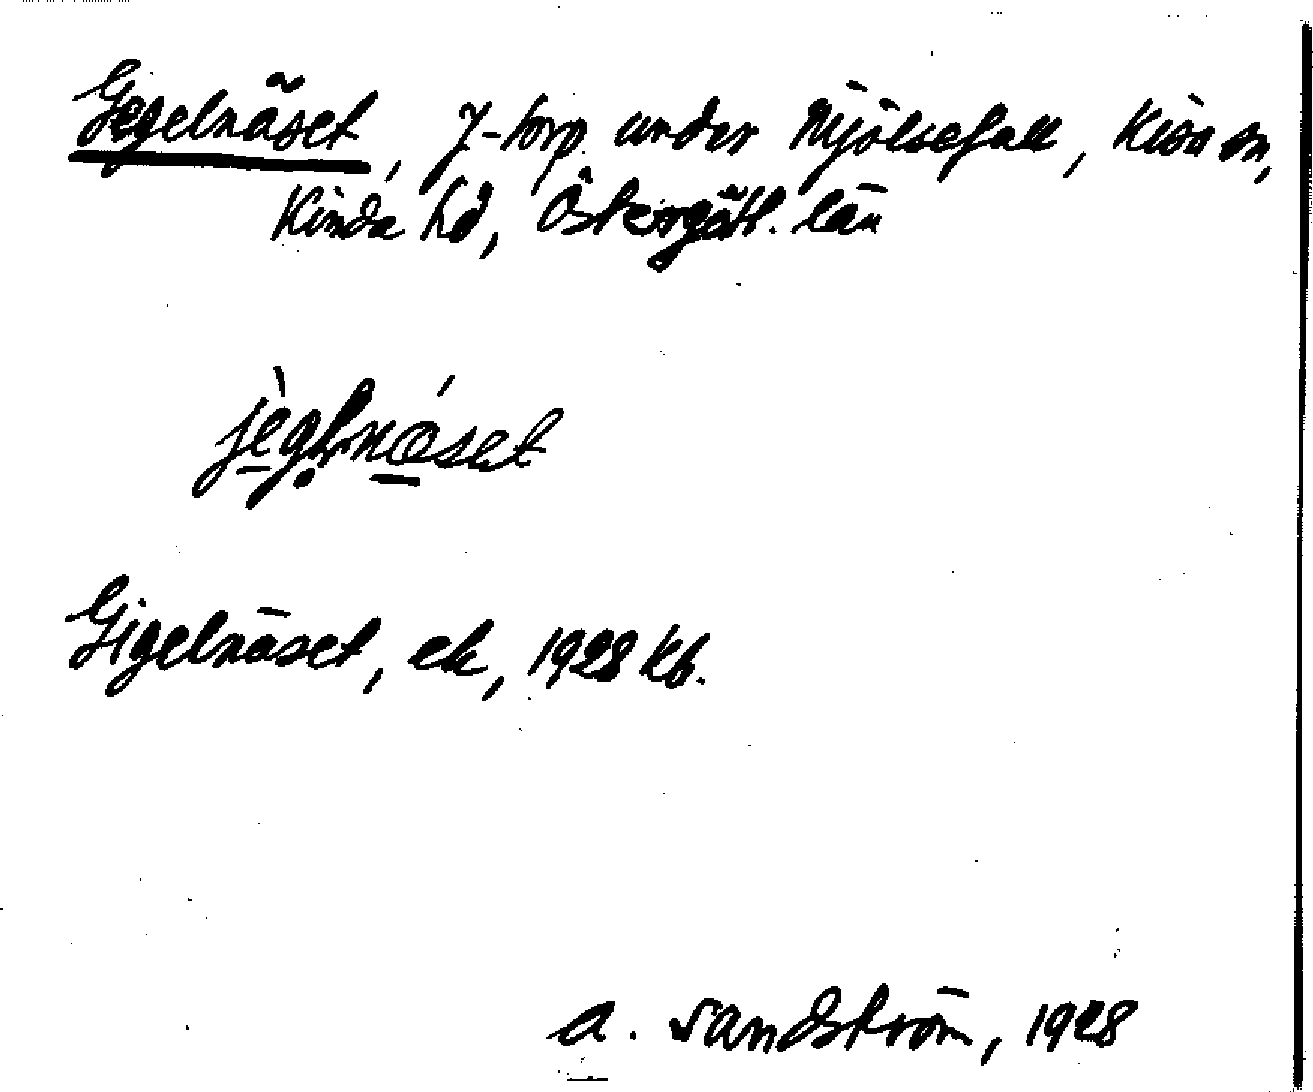 Gegelnäset, f-torp. under Mjölsefall, Kisa sn,
Kinda hd, Östergötl. län
jègḷnǿset
Gigelnäset, ek, 1928 Kb.
A. Sandström, 1928